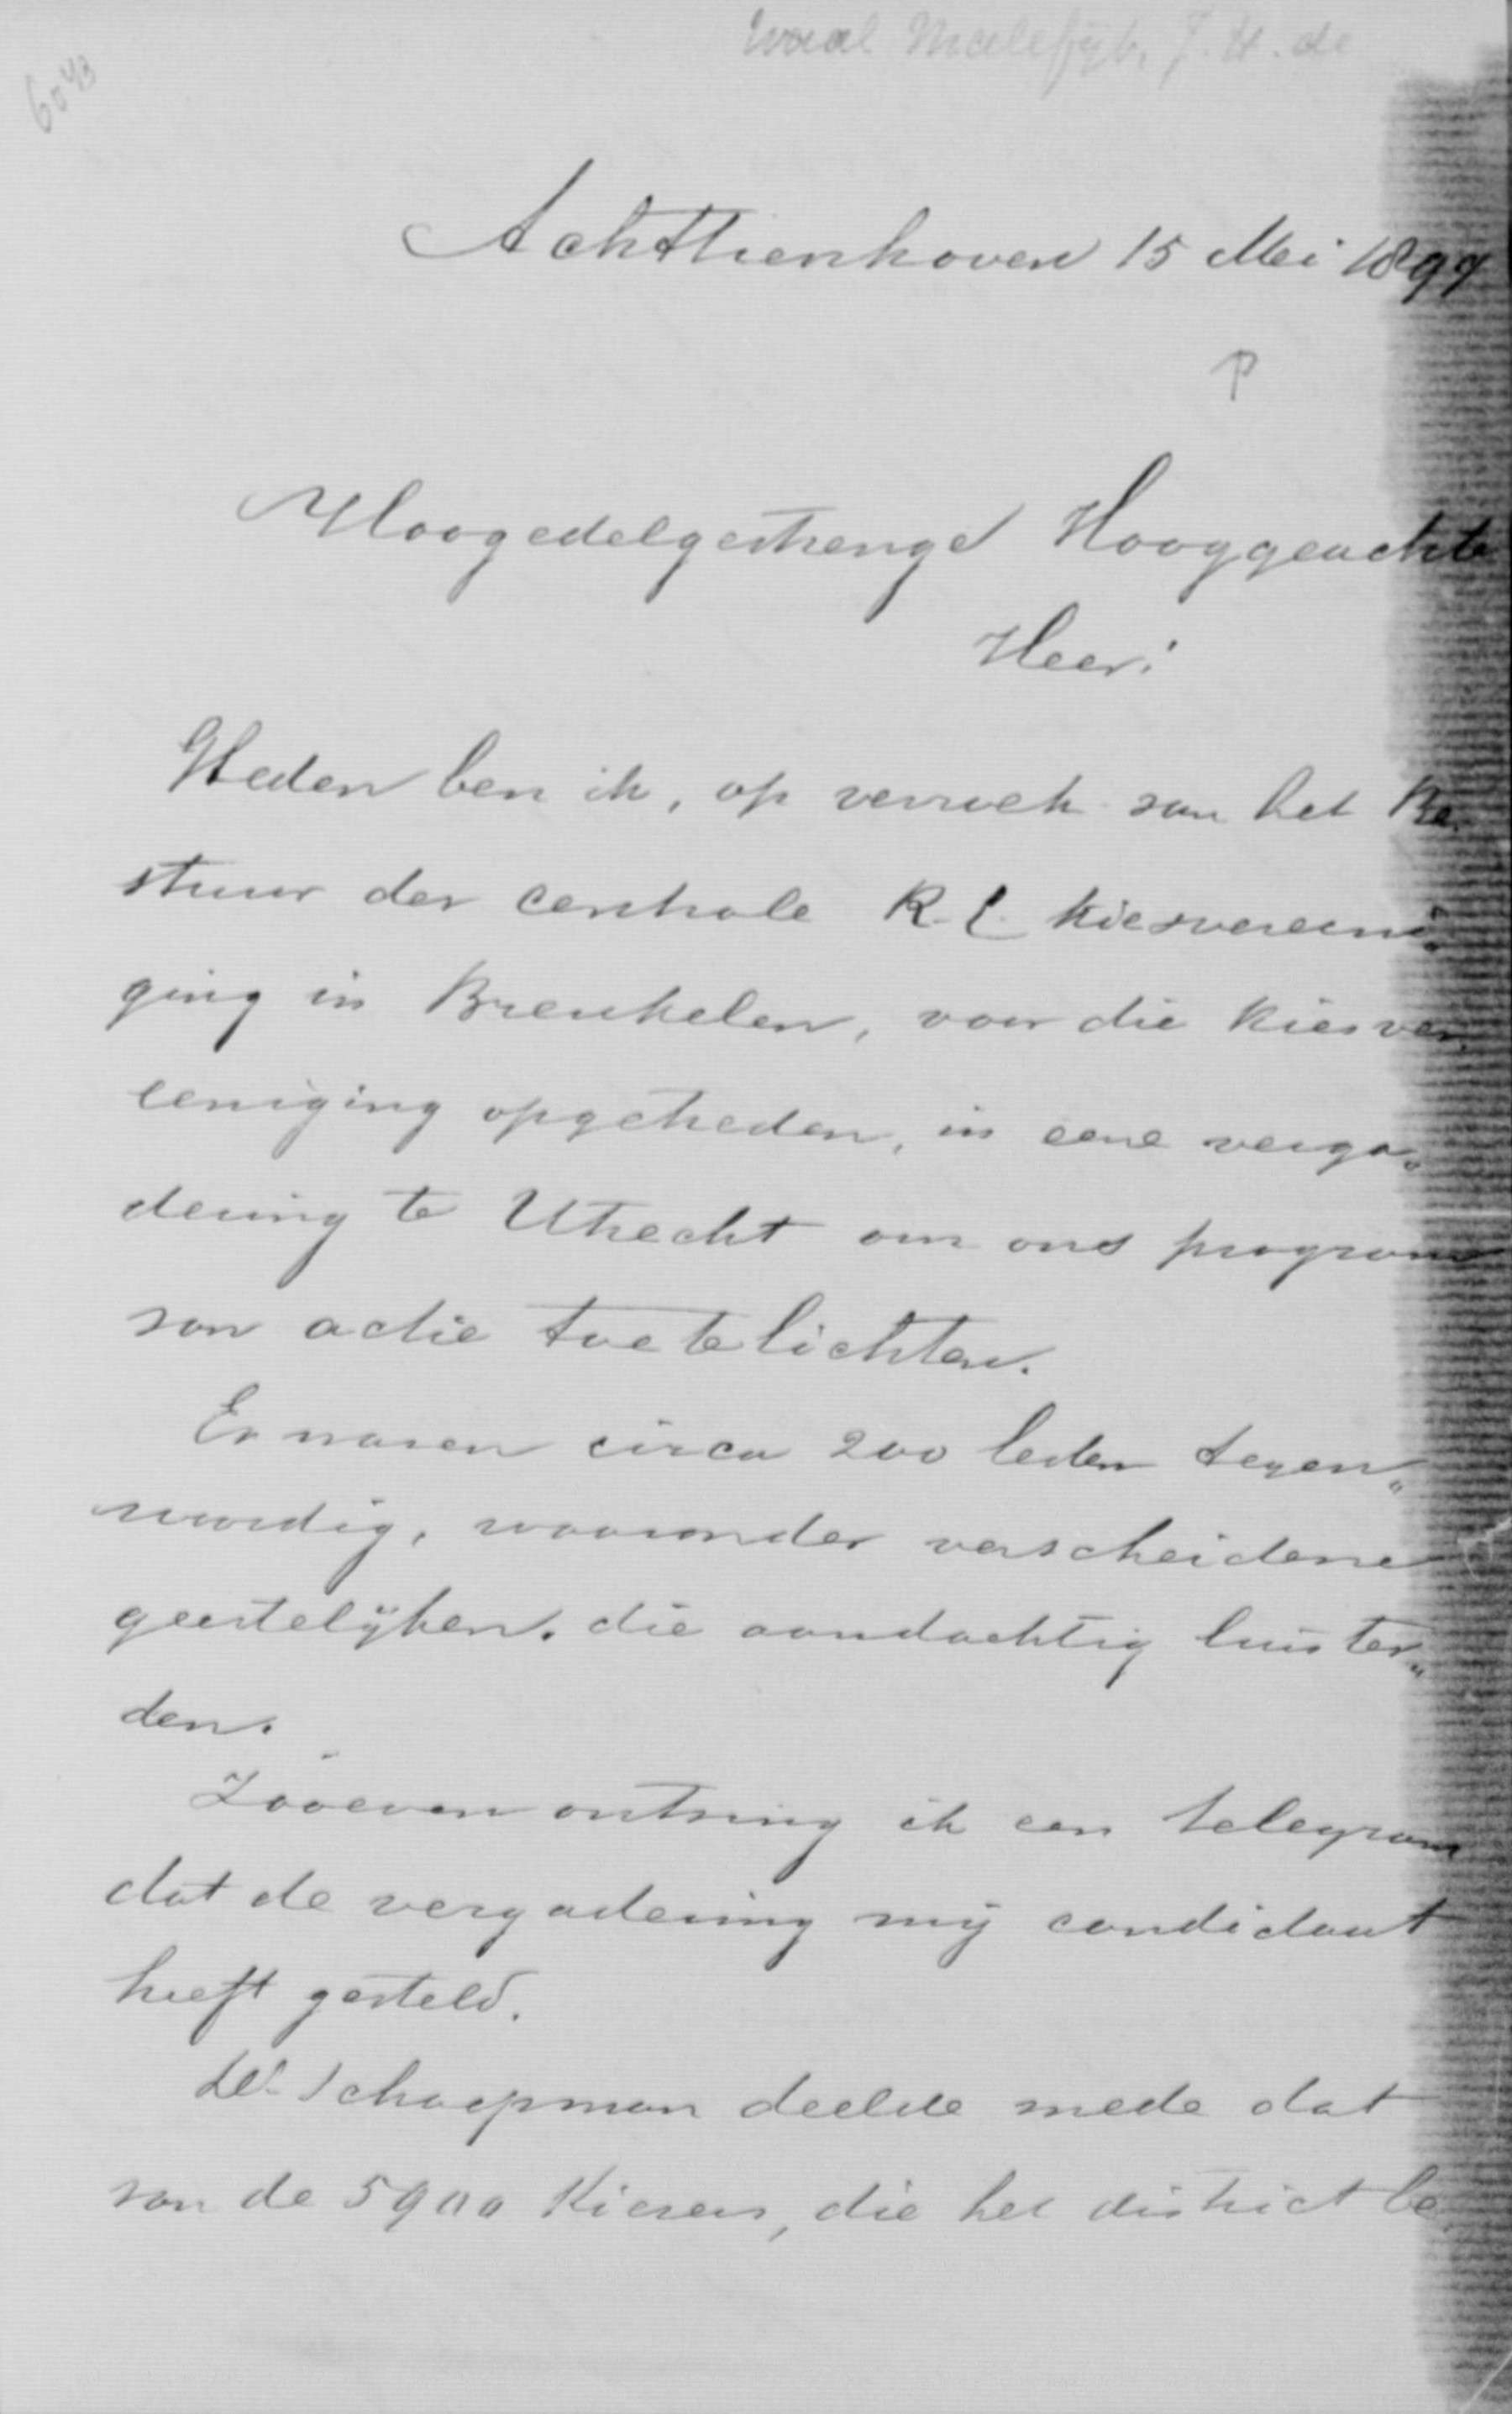 Waal Malefijt, J. H. de
6043
Achttienhoven 15 Mei 1897
P
Hoogedelgestrenge Hooggeachte
Heer!
Heden ben ik, op verzoek van het Be„
stuur der centrale R. C. Kiesvereeni„
ging in Breukelen, voor die Kiesver„
eeniging opgetreden, in eene verga„
dering te Utrecht om ons program
van actie toe te lichten.
Er waren circa 200 leden tegen„
woordig, waaronder verscheidene
geestelijken. die aandachtig luister„
den.
Zooeven ontving ik een telegram
dat de vergadering mij candidaat
heeft gesteld.
Dr Schaepman deelde mede dat
van de 5900 Kiezers, die het district be„